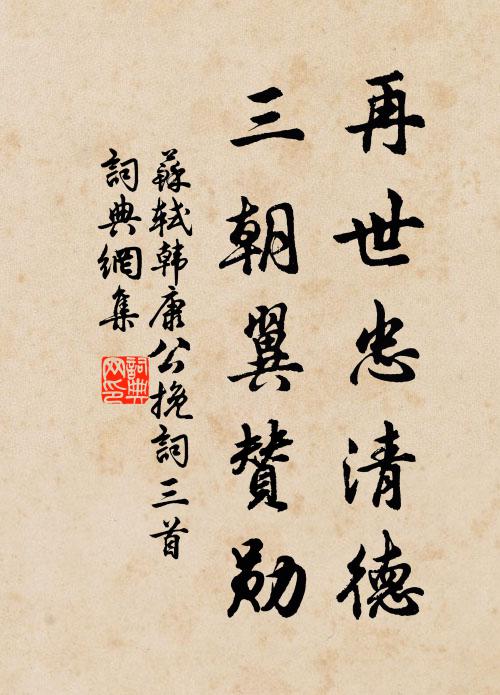 再世忠清德
三朝翼贊勛
蘇軾韓康公挽詞三首
詞典網集
詞典網印